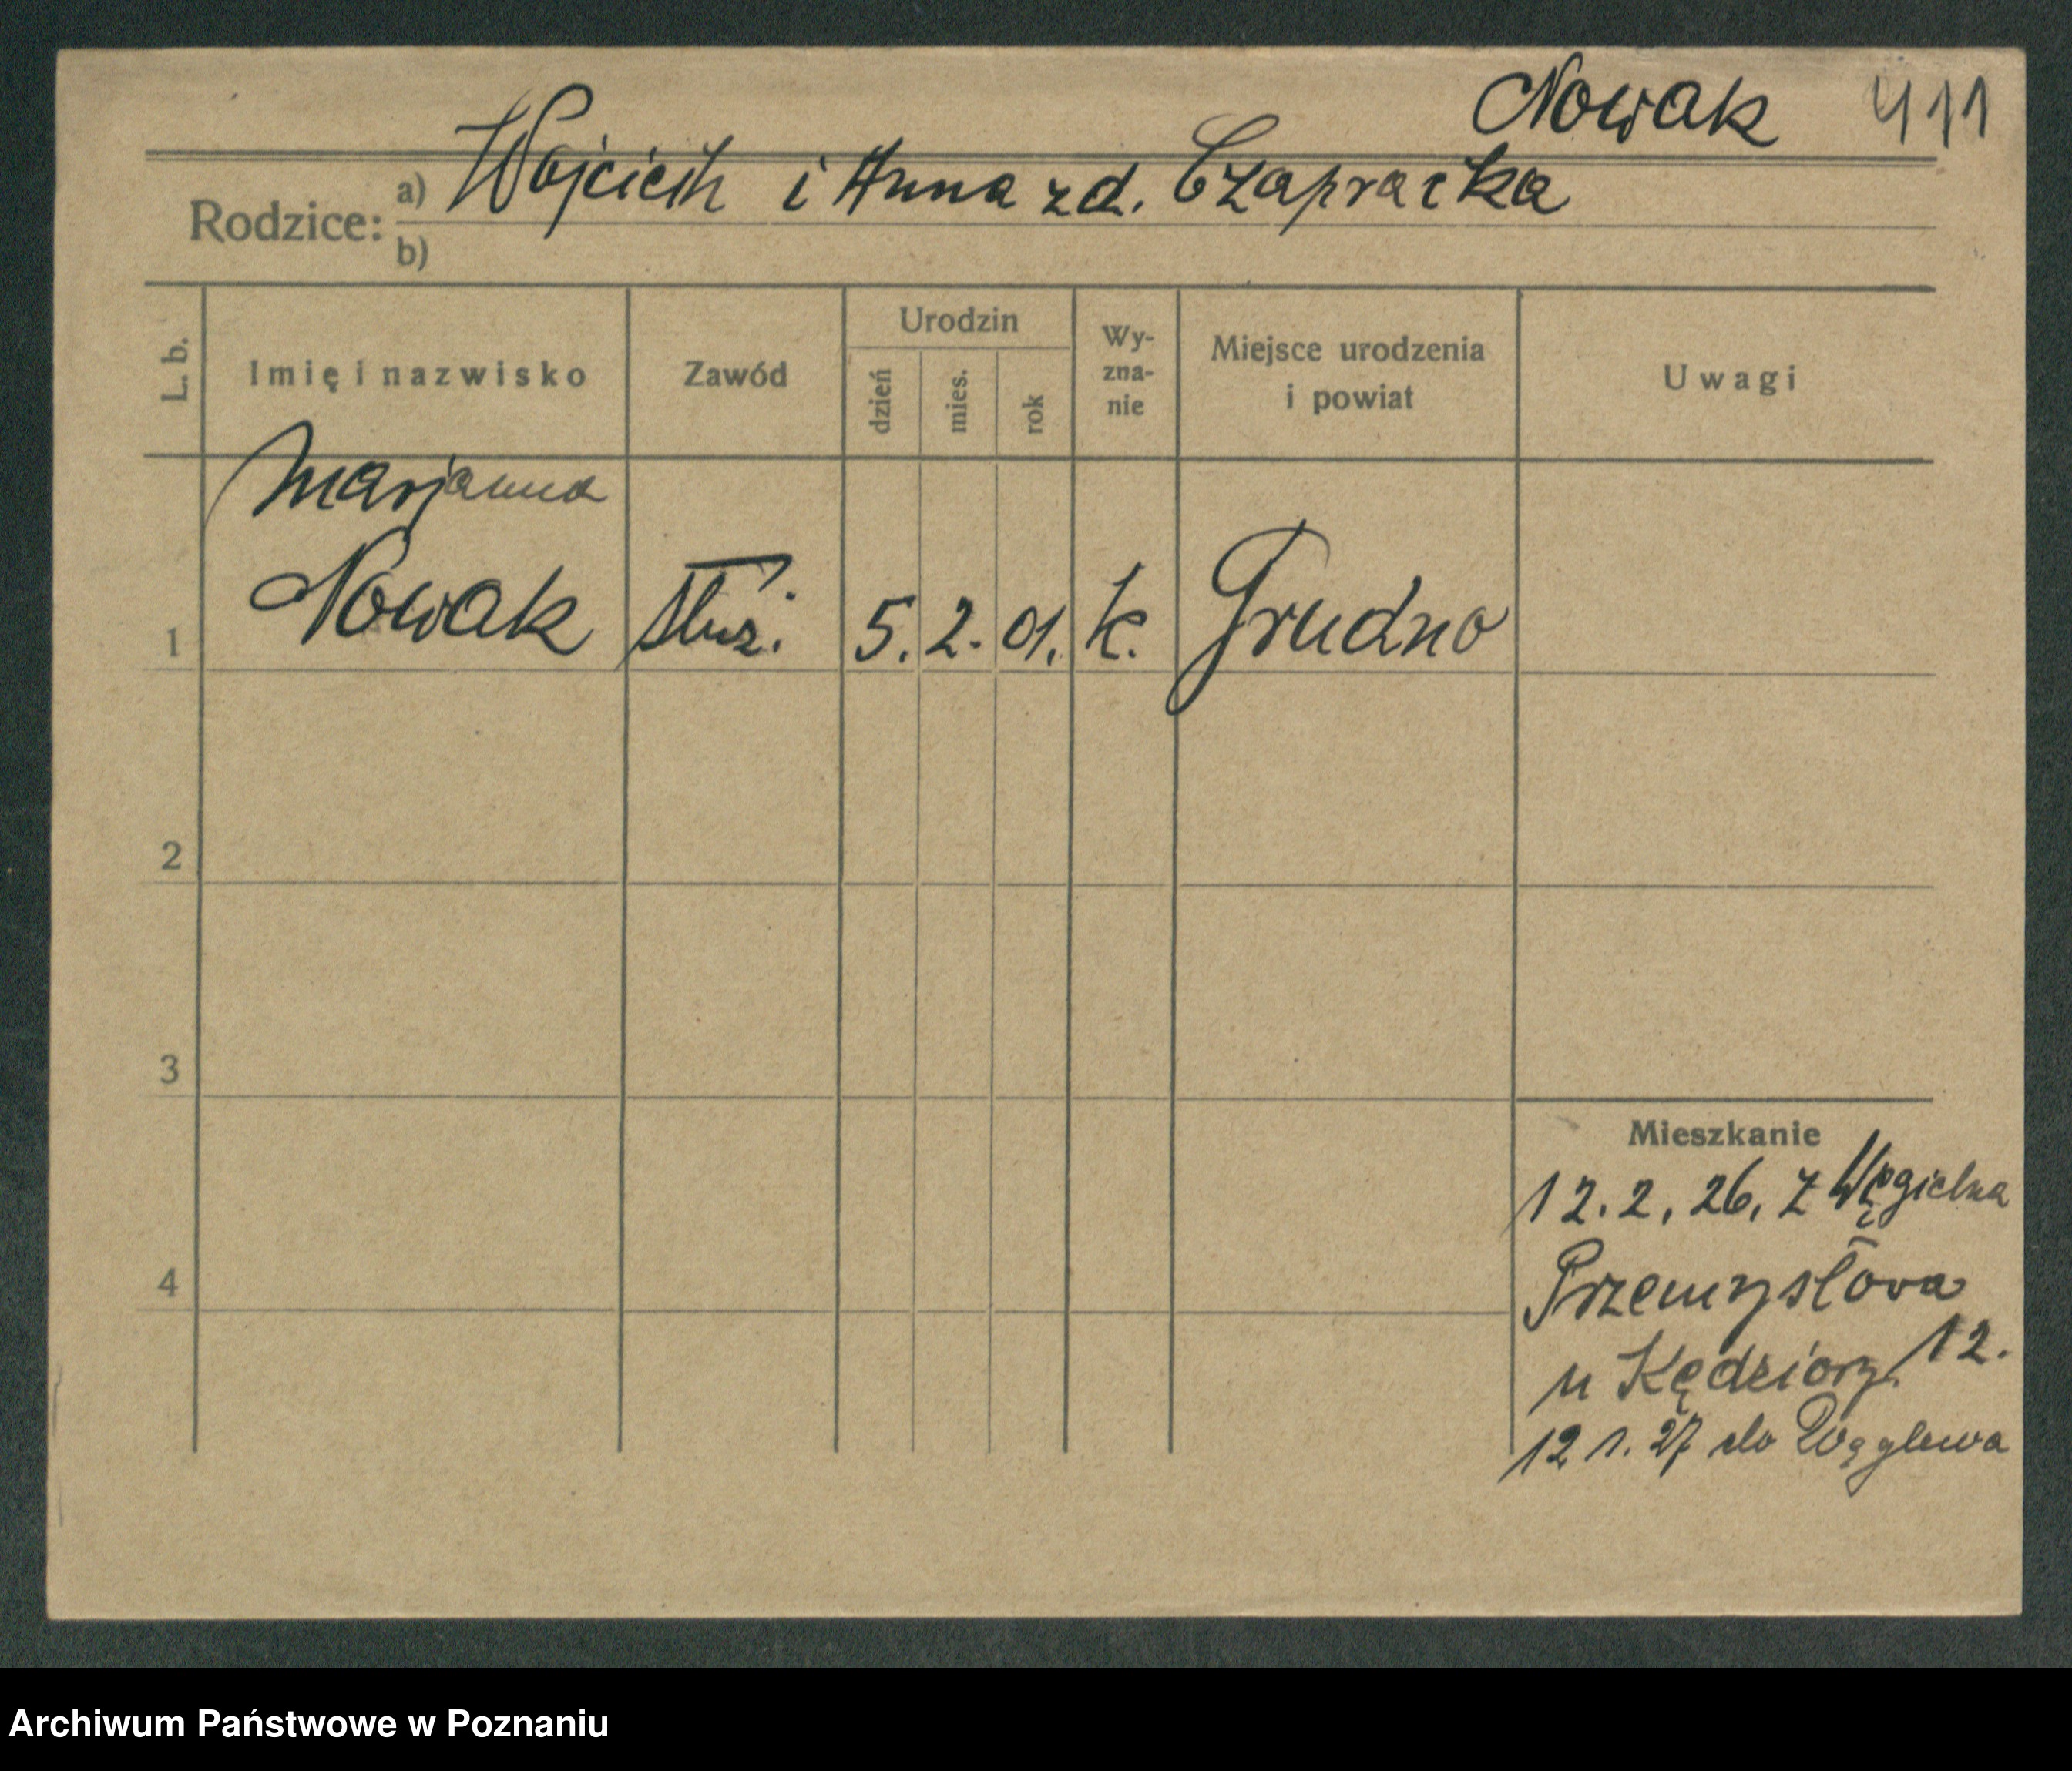 Nowak 411
Rodzice: a) Wojciech i Anna zd. Czapracka
b)
L. b. Imię i nazwisko Zawód Urodzin dzień mies. rok Wy-zna-nie Miejsce urodzenia i powiat Uwagi
Marjanna
1 Nowak służ. 5. 2. 01. k. Grudno
2
3
Mieszkanie
12. 2. 26. z Węgielna
4 Przemysłova
u Kędziory 12.
12 1. 27 do Węglewa
Archiwum Państwowe w Poznaniu